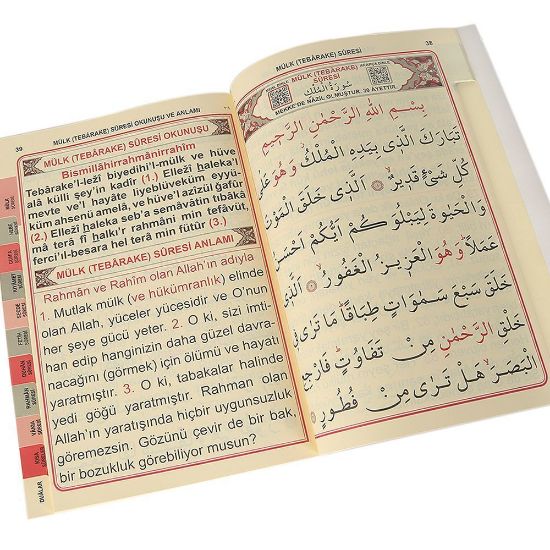 39
MÜLK (TEBÂRAKE) SÛRESİ OKUNUŞU VE ANLAMI
MÜLK (TEBÂRAKE) SÛRESİ OKUNUŞU
Bismillâhirrahmânirrahîm
Tebârake'l-lezî biyedihi'l-mülk ve hüve
alâ külli şey'in kadîr (1.) Ellezî haleka'l
mevte ve'l hayâte liyeblüveküm eyyü-
küm ahsenü amelâ, ve hüve'l azîzül ğafûr
(2.) Ellezî haleka seb'a semâvâtin tıbâkâ
mâ terâ fî halkı'r rahmâni min tefâvüt,
ferci'ıl-besara hel terâ min fütûr (3.)
MÜLK (TEBÂRAKE) SÛRESİ ANLAMI
Rahmân ve Rahîm olan Allah'ın adıyla
1. Mutlak mülk (ve hükümranlık) elinde
olan Allah, yüceler yücesidir ve O'nun
her şeye gücü yeter. 2. O ki, sizi imti-
han edip hanginizin daha güzel davra-
nacağını (görmek) için ölümü ve hayatı
yaratmıştır. 3. O ki, tabakalar halinde
yedi göğü yaratmıştır. Rahman olan
Allah'ın yaratışında hiçbir uygunsuzluk
göremezsin. Gözünü çevir de bir bak,
bir bozukluk görebiliyor musun?
MÜLK
SÛRESİ
DUÂLAR
38
MÜLK (TEBÂRAKE) SÛRESİ
MÜLK (TEBÂRAKE)
SÛRESİ
سُورَةُ الْمُلْكِ
MEKKE'DE NAZİL OLMUŞTUR. 30 ÂYETTİR.
بِسْمِ اللهِ الرَّحْمٰنِ الرَّحِيمِ
تَبَارَكَ الَّذِى بِيَدِهِ الْمُلْكُ وَهُوَ عَلٰى
كُلِّ شَىْءٍ قَدِيرٌ ۝ اَلَّذِى خَلَقَ الْمَوْتَ
وَالْحَيٰوةَ لِيَبْلُوَكُمْ اَيُّكُمْ اَحْسَنُ
عَمَلًا وَهُوَ الْعَزِيزُ الْغَفُورُ ۝ اَلَّذِى
خَلَقَ سَبْعَ سَمٰوَاتٍ طِبَاقًا مَا تَرٰى فِى
خَلْقِ الرَّحْمٰنِ مِنْ تَفَاوُتٍ فَارْجِعِ
الْبَصَرَ هَلْ تَرٰى مِنْ فُطُورٍ ۝